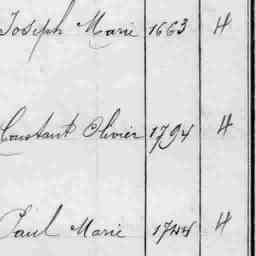 Joseph Marie 1663 H
Constant Olivier 1794 H
Paul Marie 1744 H